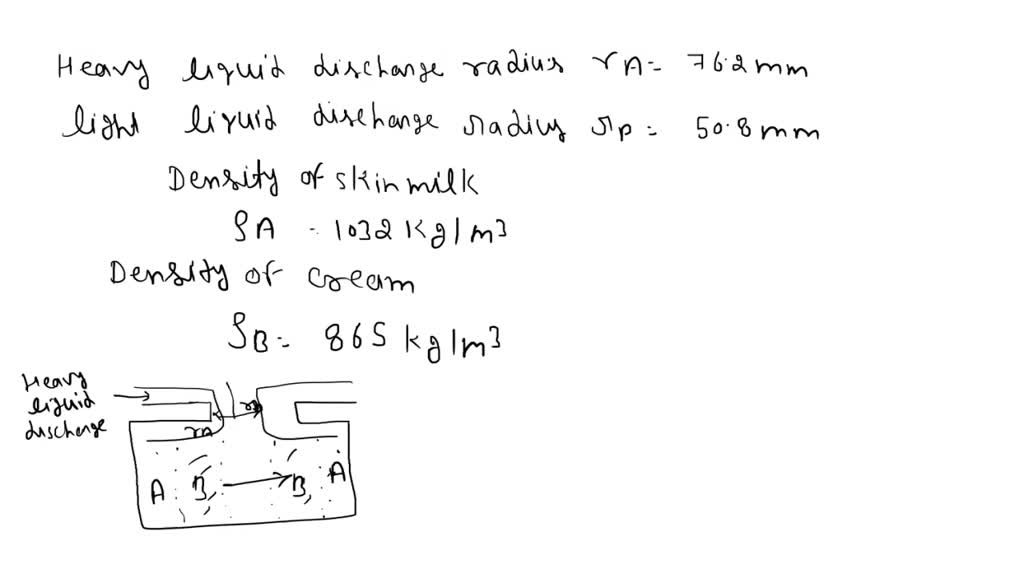 Heavy liquid discharge radius rA = 76.2 mm
light liquid discharge radius rP = 50.8 mm
Density of skinmilk
ρA = 1032 kg/m3
Density of cream
ρB = 865 kg/m3
Heavy
liquid
discharge
rA
A B B A